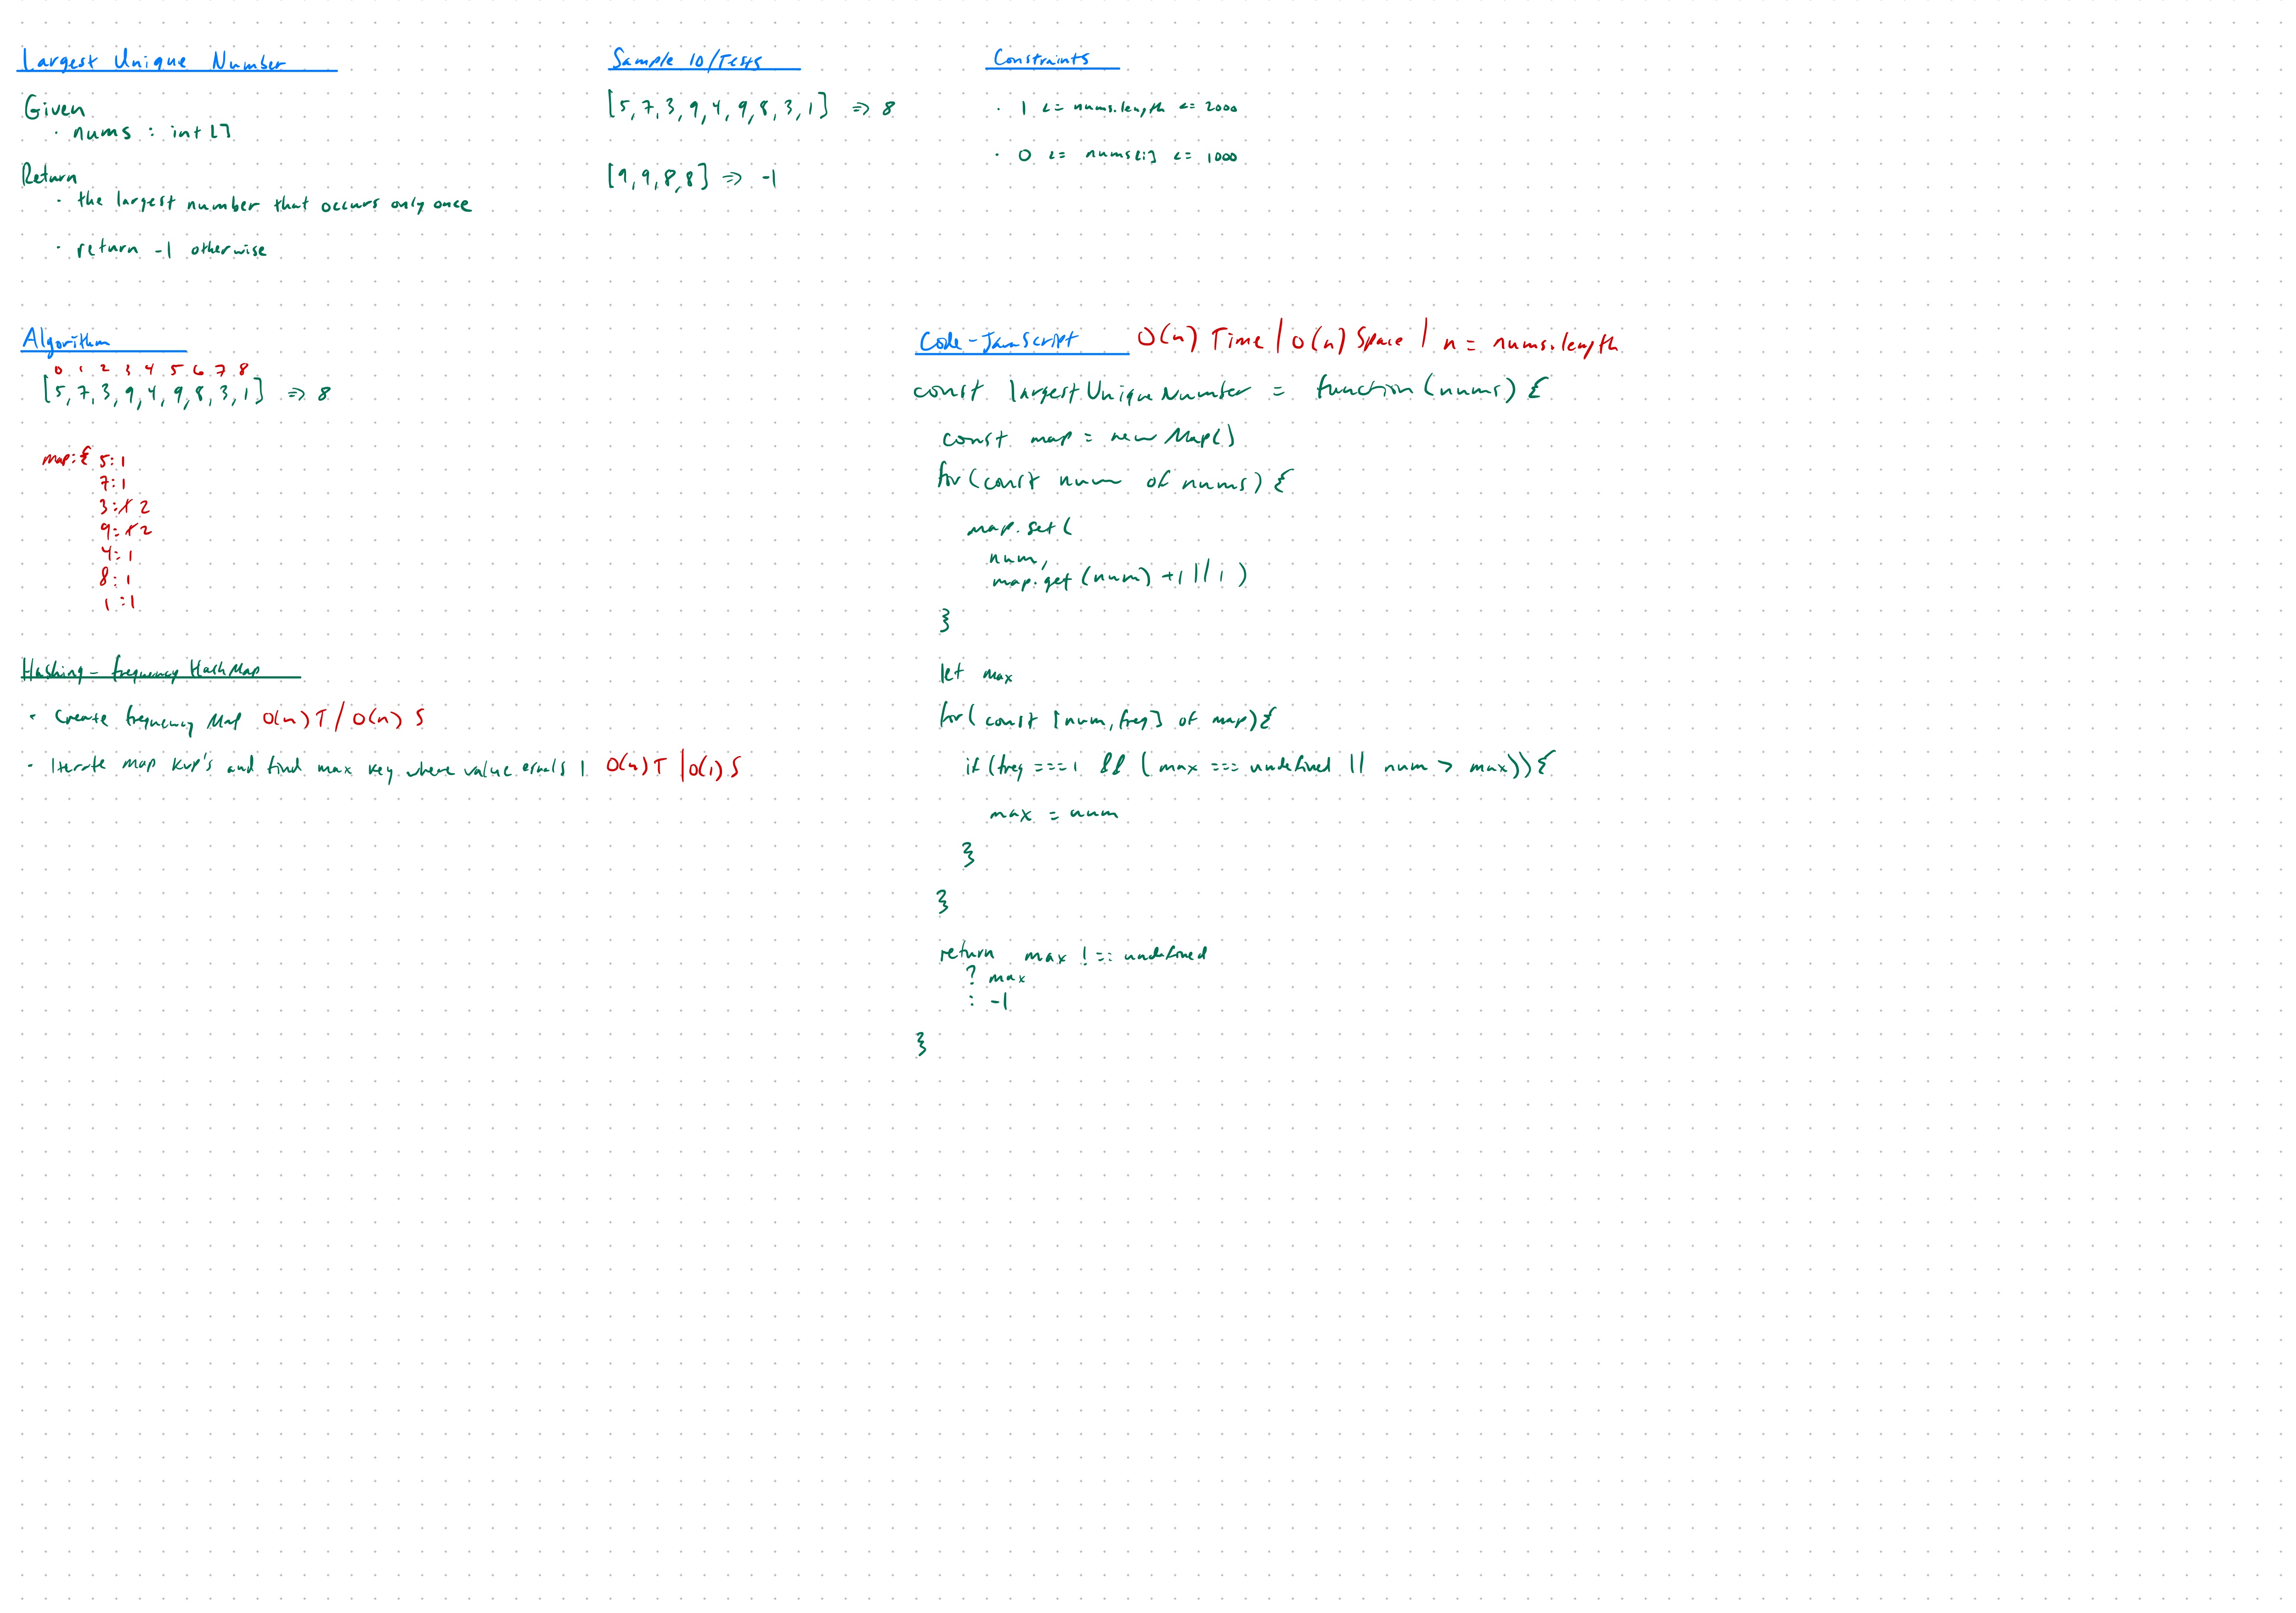 Largest Unique Number
Given
· nums : int[]
Return
· the largest number that occurs only once
· return -1 otherwise
Sample IO/Tests
[5, 7, 3, 9, 4, 9, 8, 3, 1] => 8
[9, 9, 8, 8] => -1
Constraints
· 1 <= nums.length <= 2000
· 0 <= nums[i] <= 1000
Algorithm
0 1 2 3 4 5 6 7 8
[5, 7, 3, 9, 4, 9, 8, 3, 1] => 8
map:{ 5:1
7:1
3:1 2
9:1 2
4:1
8:1
1:1
Hashing - frequency HashMap
· Create frequency Map O(n) T / O(n) S
· Iterate map KVP's and find max key where value equals 1 O(n) T | O(1) S
Code - JavaScript O(n) Time | O(n) Space | n = nums.length
const largestUniqueNumber = function(nums) {
const map = new Map()
for(const num of nums) {
map.set(
num,
map.get(num) +1 || 1)
}
let max
for(const [num, freq] of map){
if (freq === 1 && (max === undefined || num > max)){
max = num
}
}
return max !== undefined
? max
: -1
}